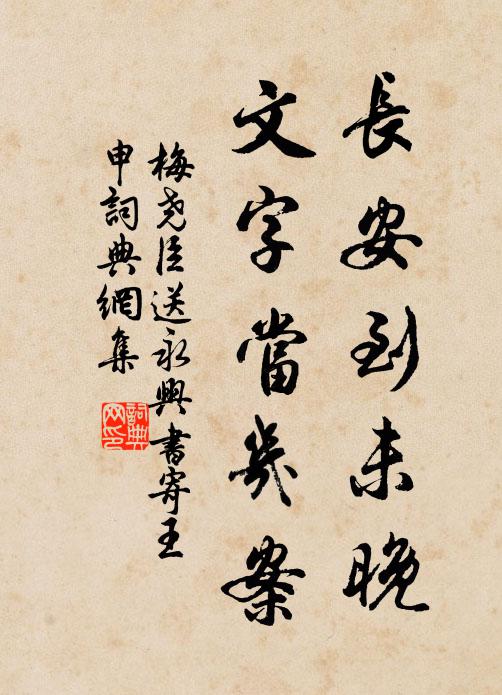 長安到未晚
文字當幾案
梅堯臣送永興書寄王
申詞典網集
詞典網印